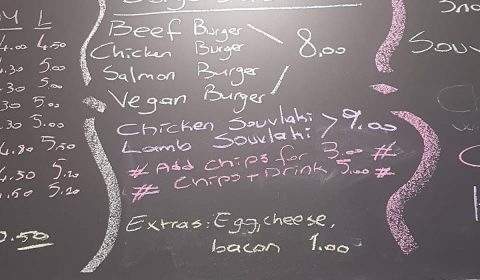 M L
4.00 4.50
.30 5.00
.30 5.00
.30 5.00
4.80 5.50
4.50 5.20
.50 5.20
0.50
Beef Burger
Chicken Burger
Salmon Burger
Vegan Burger
8.00
Chicken Souvlaki
Lamb Souvlaki
> 9.00
# Add chips for 3.00 #
# Chips + Drink 5.00 #
Extras: Egg, cheese,
bacon 1.00
Sno
Souv